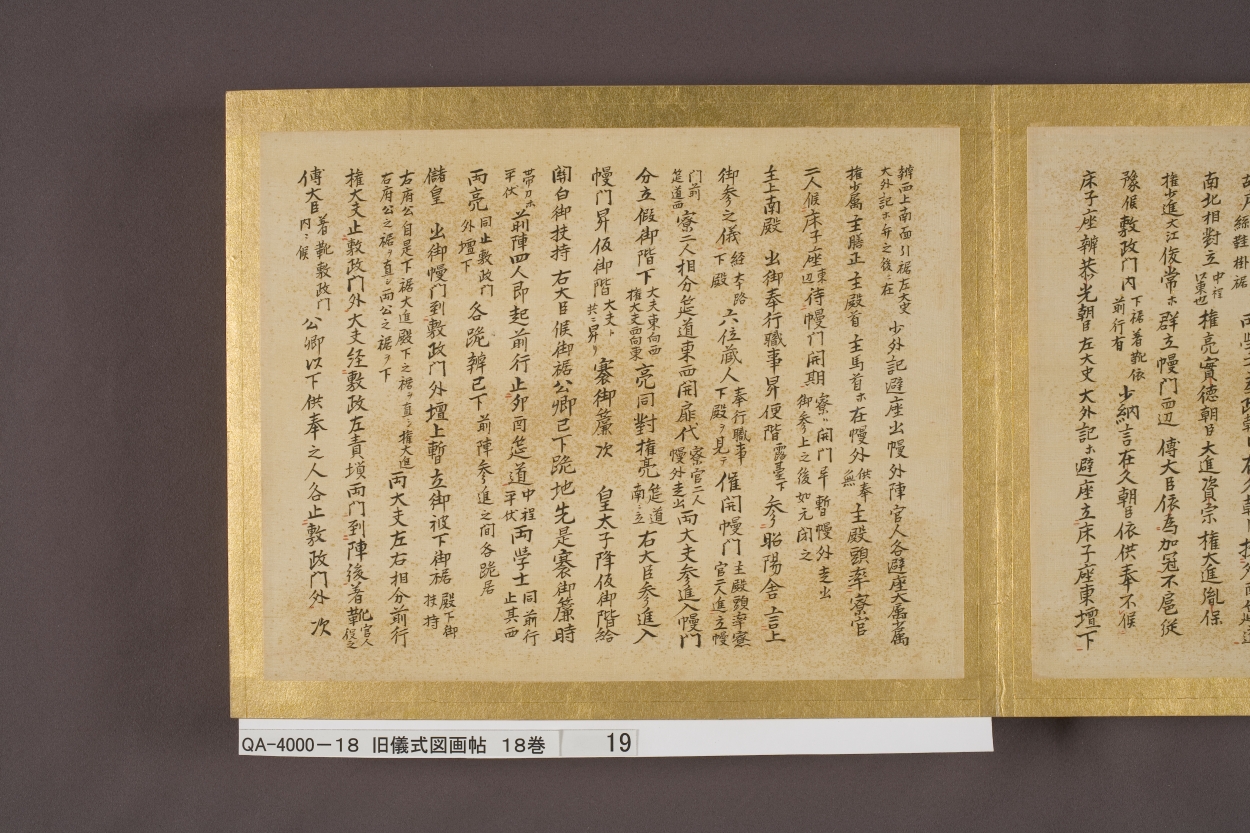 南北相對立 中程以東也 權亮實德朝臣大進資宗 權大進胤保
權少進大江俊常ホ群立幔門西辺 傅大臣依為加冠不扈従
豫候敷政門内 下裾著靴依前行有 少納言在久朝臣依供奉不候
床子座辨恭光朝臣左大史 大外記ホ避座立床子座東壇下
辨西上南面引裾左大史大外記ホ弁之後ニ在 少外記避座出幔外陣官人各避座大属少属
權少属 主膳正 主殿首 主馬首ホ在幔外 供奉無 主殿頭率寮官
二人候床子座 東辺 待幔門開期 寮開門早暫幔外走出御参上之後如元閉之
主上南殿 出御奉行職事昇便階 露臺下 参昭陽舎言上
御参之儀 経本路下殿 六位蔵人 奉行職事下殿ヲ見テ 催開幔門 主殿頭率寮官二人進立幔
門前筵道西 寮二人相分筵道東西開扉代 寮官二人幔外走出 両大夫参進入幔門
分立假御階下 大夫東向西權大夫西向東 亮同對權亮 筵道南ニ立 右大臣参進入
幔門昇仮御階 大夫ト共ニ昇 褰御簾 次 皇太子降仮御階給
關白御扶持 右大臣候御裾公卿已下跪地先是褰御簾時
帯刀ホ平伏 前陣四人即起前行止卯酉筵道 中程平伏 両学士 同前行止其西
両亮 同止敷政門外壇下 各跪辨已下 前陣参進之間各跪居
儲皇 出御幔門到敷政門外壇上暫立御被下御裾 殿下御扶持
右府公自是下裾大進殿下之裾ヲ直シ權大進右府公之裾ヲ直シ両公之裾ヲ下 両大夫左右相分前行
權大夫止敷政門外大夫経敷政左青璅両門到陣後著靴 官人役之
傅大臣 著靴敷政門内ニ候 公卿以下供奉之人各止敷政門外 次
QA-4000-18 旧儀式図画帖 18巻 19